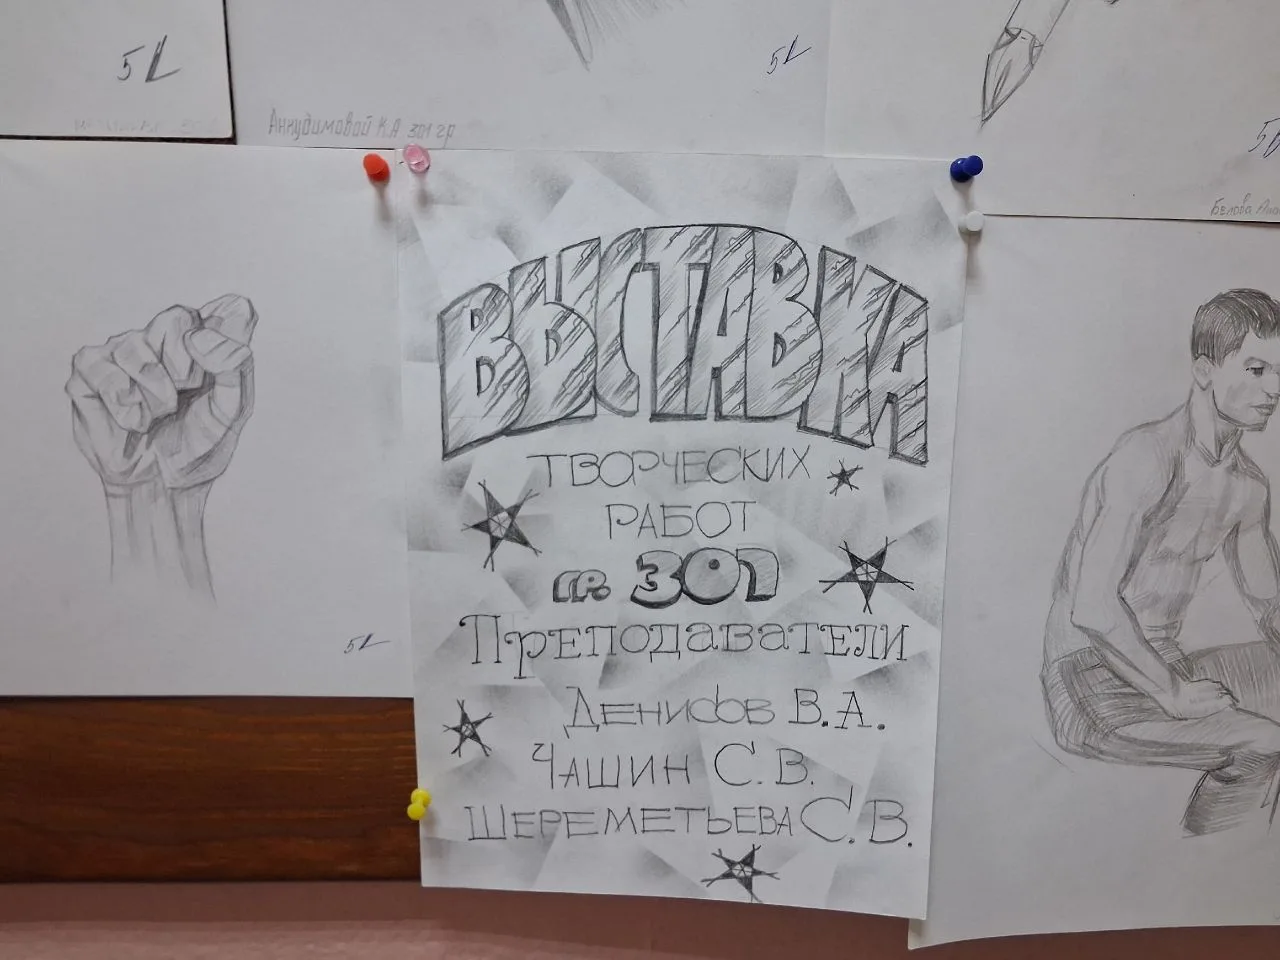 5
5
Анкудимовой К.А 301 гр
Белова
ВЫСТАВКА
ТВОРЧЕСКИХ
РАБОТ
ГР. 307
ПРЕПОДАВАТЕЛИ
ДЕНИСОВ В.А.
ЧАШИН С.В.
ШЕРЕМЕТЬЕВА С.В.
5